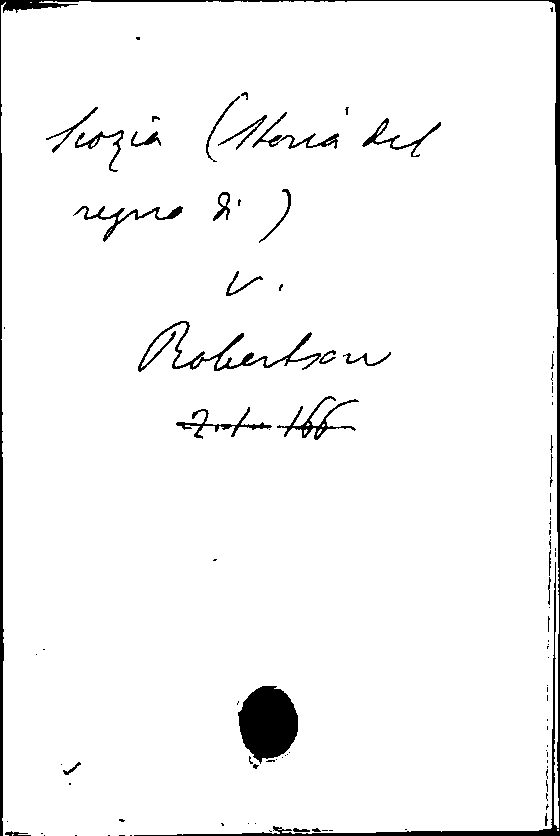 Scozia (Storia del
regno di)
v.
Robertson
2. 1. 166